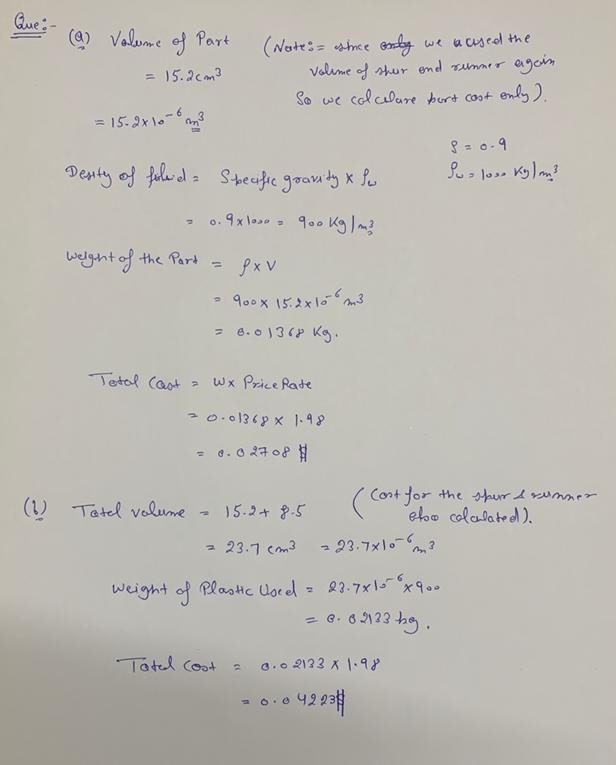 Que:-
(a) Volume of Part (Note:= since only we used the
= 15.2cm³ Volume of spur and runner again
= 15.2x10⁻⁶ m³ So we calculate part cost only).
S = 0.9
Desity of = Specific gravity x ρw ρw = 1000 Kg/m³
= 0.9x1000 = 900 Kg/m³
Weight of the Part = ρxV
= 900x 15.2x10⁻⁶ m³
= 0.01368 Kg.
Total Cost = Wx Price Rate
= 0.01368 x 1.98
= 0.02708 $
(b) Total volume = 15.2+ 8.5 (Cost for the spur & runner
also calculated).
= 23.7 cm³ = 23.7x10⁻⁶ m³
Weight of Plastic Used = 23.7x10⁻⁶x900
= 0.02133 kg.
Total Cost = 0.02133 x 1.98
= 0.04223$